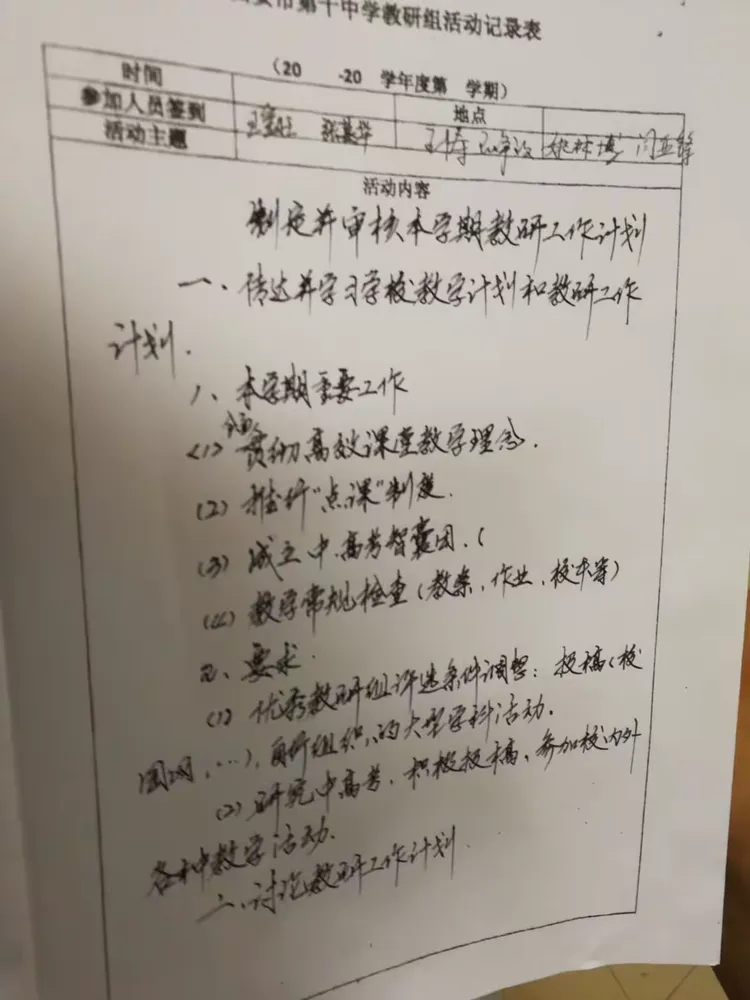 安市第十中学教研组活动记录表
（20 -20 学年度第 学期）
时间 地点
参加人员签到
活动主题
活动内容
制定并审核本学期教研工作计划
一、传达并学习学校教学计划和教研工作
计划.
1、本学期重要工作
(1) 贯彻高效课堂教学理念.
(2) 推行"点课"制度.
(3) 成立中.高考智囊团.(
(4) 教学常规检查(教案、作业、校本等)
2、要求.
(1) 优秀教研组评选条件调整：投稿(校
园网,…),自行组织的大型学科活动.
(2) 研究中高考、积极投稿、参加校内外
各种教学活动.
二、讨论教研工作计划